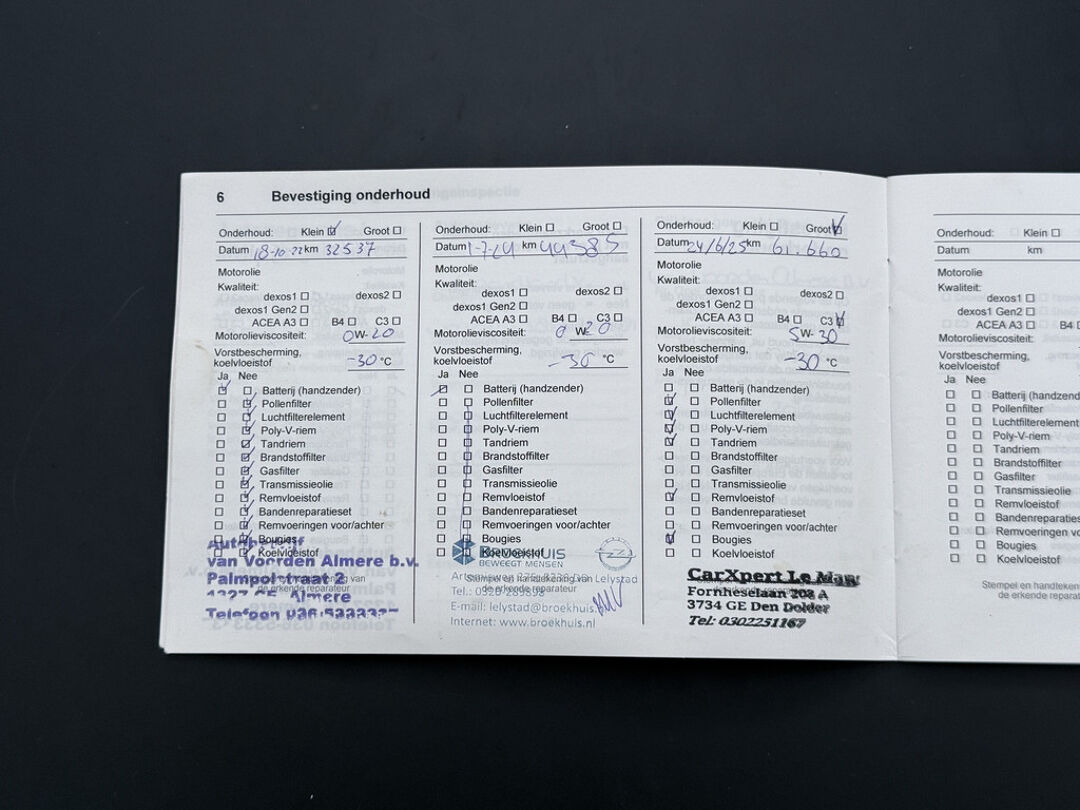 6 Bevestiging onderhoud
Onderhoud: Klein ☑ Groot ☐
Datum 18-10-22 km 32537
Motorolie
Kwaliteit:
dexos1 ☐ dexos2 ☐
dexos1 Gen2 ☐
ACEA A3 ☐ B4 ☐ C3 ☐
Motorolieviscositeit: 0W-20
Vorstbescherming,
koelvloeistof -30 °C
Ja Nee
☑ ☐ Batterij (handzender)
☐ ☑ Pollenfilter
☐ ☑ Luchtfilterelement
☐ ☑ Poly-V-riem
☐ ☑ Tandriem
☐ ☑ Brandstoffilter
☐ ☑ Gasfilter
☐ ☑ Transmissieolie
☐ ☑ Remvloeistof
☐ ☑ Bandenreparatieset
☐ ☑ Remvoeringen voor/achter
☐ ☑ Bougies
☐ ☑ Koelvloeistof
van Voorden Almere b.v.
Palmpolstraat 2
Almere
Telefoon
Onderhoud: Klein ☐ Groot ☐
Datum 1-7-24 km 44385
Motorolie
Kwaliteit:
dexos1 ☐ dexos2 ☐
dexos1 Gen2 ☐
ACEA A3 ☐ B4 ☐ C3 ☐
Motorolieviscositeit: 0W20
Vorstbescherming,
koelvloeistof -30 °C
Ja Nee
☑ ☐ Batterij (handzender)
☐ ☐ Pollenfilter
☐ ☐ Luchtfilterelement
☐ ☐ Poly-V-riem
☐ ☐ Tandriem
☐ ☐ Brandstoffilter
☐ ☐ Gasfilter
☐ ☐ Transmissieolie
☐ ☐ Remvloeistof
☐ ☐ Bandenreparatieset
☐ ☐ Remvoeringen voor/achter
☐ ☐ Bougies
☐ ☐ Koelvloeistof
BROEKHUIS
BEWEEGT MENSEN
Lelystad
Tel.:
E-mail: lelystad@broekhuis.
Internet: www.broekhuis.nl
Onderhoud: Klein ☐ Groot ☑
Datum 24/6/25 km 61.660
Motorolie
Kwaliteit:
dexos1 ☐ dexos2 ☐
dexos1 Gen2 ☐
ACEA A3 ☐ B4 ☐ C3 ☑
Motorolieviscositeit: 5W-30
Vorstbescherming,
koelvloeistof -30 °C
Ja Nee
☐ ☐ Batterij (handzender)
☑ ☐ Pollenfilter
☑ ☐ Luchtfilterelement
☑ ☐ Poly-V-riem
☑ ☐ Tandriem
☐ ☐ Brandstoffilter
☐ ☐ Gasfilter
☐ ☐ Transmissieolie
☑ ☐ Remvloeistof
☐ ☐ Bandenreparatieset
☐ ☐ Remvoeringen voor/achter
☑ ☐ Bougies
☐ ☐ Koelvloeistof
CarXpert Le Man
Fornheselaan 208 A
3734 GE Den Dolder
Tel: 0302251167
Onderhoud: ☐ Klein ☐
Datum km
Motorolie
Kwaliteit:
dexos1 ☐
dexos1 Gen2 ☐
ACEA A3 ☐ B4
Motorolieviscositeit:
Vorstbescherming,
koelvloeistof
Ja Nee
☐ ☐ Batterij (handzend
☐ ☐ Pollenfilter
☐ ☐ Luchtfilterelement
☐ ☐ Poly-V-riem
☐ ☐ Tandriem
☐ ☐ Brandstoffilter
☐ ☐ Gasfilter
☐ ☐ Transmissieolie
☐ ☐ Remvloeistof
☐ ☐ Bandenreparaties
☐ ☐ Remvoeringen voo
☐ ☐ Bougies
☐ ☐ Koelvloeistof
Stempel en handteken
de erkende reparat